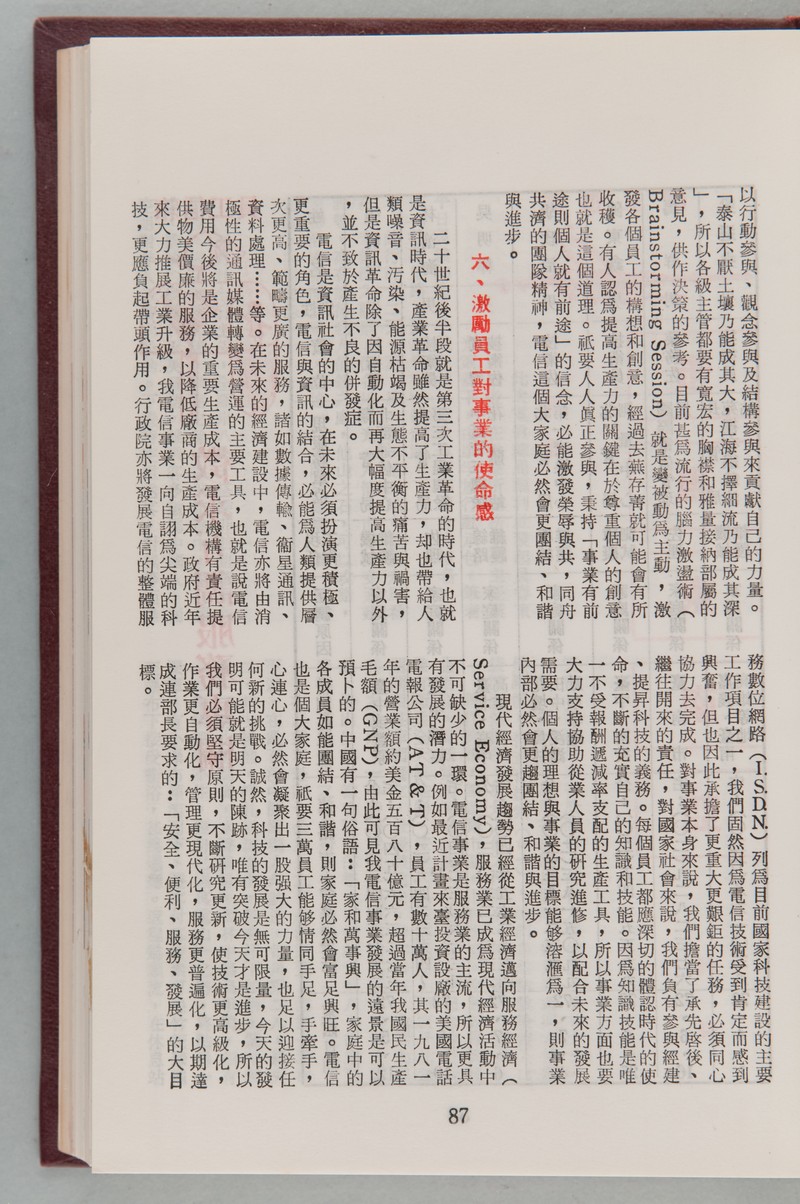 以行動參與、觀念參與及結構參與來貢獻自己的力量。
「泰山不厭土壤乃能成其大,江海不擇細流乃能成其深
」,所以各級主管都要有寬宏的胸襟和雅量接納部屬的
意見,供作決策的參考。目前甚爲流行的腦力激盪術(
Brainstorming Session)就是變被動爲主動,激
發各個員工的構想和創意,經過去蕪存菁就可能會有所
收穫。有人認爲提高生產力的關鍵在於尊重個人的創意
也就是這個道理。祇要人人眞正參與,秉持「事業有前
途則個人就有前途」的信念,必能激發榮辱與共,同舟
共濟的團隊精神,電信這個大家庭必然會更團結、和諧
與進步。
六、激勵員工對事業的使命感
二十世紀後半段就是第三次工業革命的時代,也就
是資訊時代,產業革命雖然提高了生產力,却也帶給人
類噪音、汚染、能源枯竭及生態不平衡的痛苦與禍害,
但是資訊革命除了因自動化而再大幅度提高生產力以外
,並不致於產生不良的併發症。
電信是資訊社會的中心,在未來必須扮演更積極、
更重要的角色,電信與資訊的結合,必能爲人類提供層
次更高、範疇更廣的服務,諸如數據傳輸、衞星通訊、
資料處理……等。在未來的經濟建設中,電信亦將由消
極性的通訊媒體轉變爲營運的主要工具,也就是說電信
費用今後將是企業的重要生產成本,電信機構有責任提
供物美價廉的服務,以降低廠商的生產成本。政府近年
來大力推展工業升級,我電信事業一向自詡爲尖端的科
技,更應負起帶頭作用。行政院亦將發展電信的整體服
務數位網路(I.S.D.N.)列爲目前國家科技建設的主要
工作項目之一,我們固然因爲電信技術受到肯定而感到
興奮,但也因此承擔了更重大更艱鉅的任務,必須同心
協力去完成。對事業本身來說,我們擔當了承先啓後、
繼往開來的責任,對國家社會來說,我們負有參與經建
、提昇科技的義務。每個員工都應深切的體認時代的使
命,不斷的充實自己的知識和技能。因爲知識技能是唯
一不受報酬遞減率支配的生產工具,所以事業方面也要
大力支持協助從業人員的硏究進修,以配合未來的發展
需要。個人的理想與事業的目標能够溶滙爲一,則事業
內部必然會更趨團結、和諧與進步。
現代經濟發展趨勢已經從工業經濟邁向服務經濟(
Service Economy),服務業已成爲現代經濟活動中
不可缺少的一環。電信事業是服務業的主流,所以更具
有發展的潛力。例如最近計畫來臺投資設廠的美國電話
電報公司(AT & T),員工有數十萬人,其一九八一
年的營業額約美金五百八十億元,超過當年我國民生產
毛額(GNP),由此可見我電信事業發展的遠景是可以
預卜的。中國有一句俗語:「家和萬事興」,家庭中的
各成員如能團結、和諧,則家庭必然會富足興旺。電信
也是個大家庭,祇要三萬員工能够情同手足,手牽手,
心連心,必然會凝聚出一股强大的力量,也足以迎接任
何新的挑戰。誠然,科技的發展是無可限量,今天的發
明可能就是明天的陳跡,唯有突破今天才是進步,所以
我們必須堅守原則,不斷硏究更新,使技術更高級化,
作業更自動化,管理更現代化,服務更普遍化,以期達
成連部長要求的:「安全、便利、服務、發展」的大目
標。
87